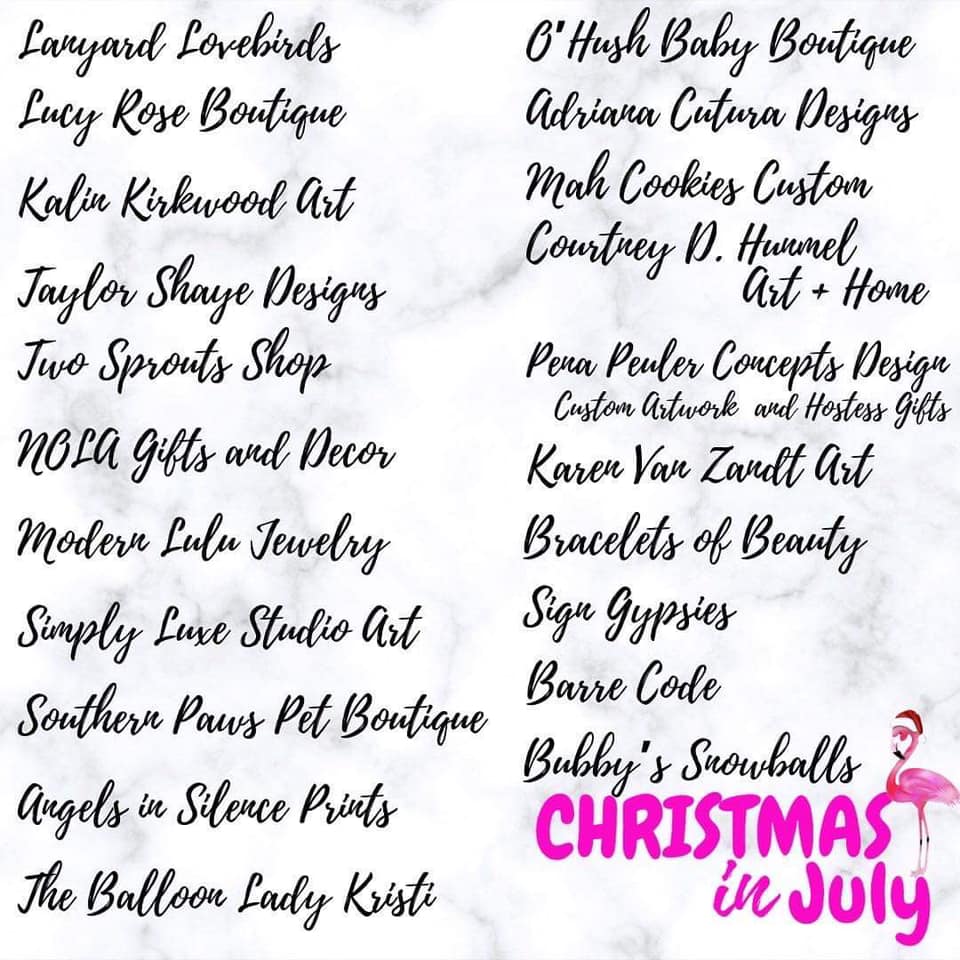 Lanyard Lovebirds
Lucy Rose Boutique
Kalin Kirkwood Art
Taylor Shaye Designs
Two Sprouts Shop
NOLA Gifts and Decor
Modern Lulu Jewelry
Simply Luxe Studio Art
Southern Paws Pet Boutique
Angels in Silence Prints
The Balloon Lady Kristi
O'Hush Baby Boutique
Adriana Cutura Designs
Mah Cookies Custom
Courtney D. Hunmel
Art + Home
Pena Peuler Concepts Design
Custom Artwork and Hostess Gifts
Karen Van Zandt Art
Bracelets of Beauty
Sign Gypsies
Barre Code
Bubby's Snowballs
CHRISTMAS
in July